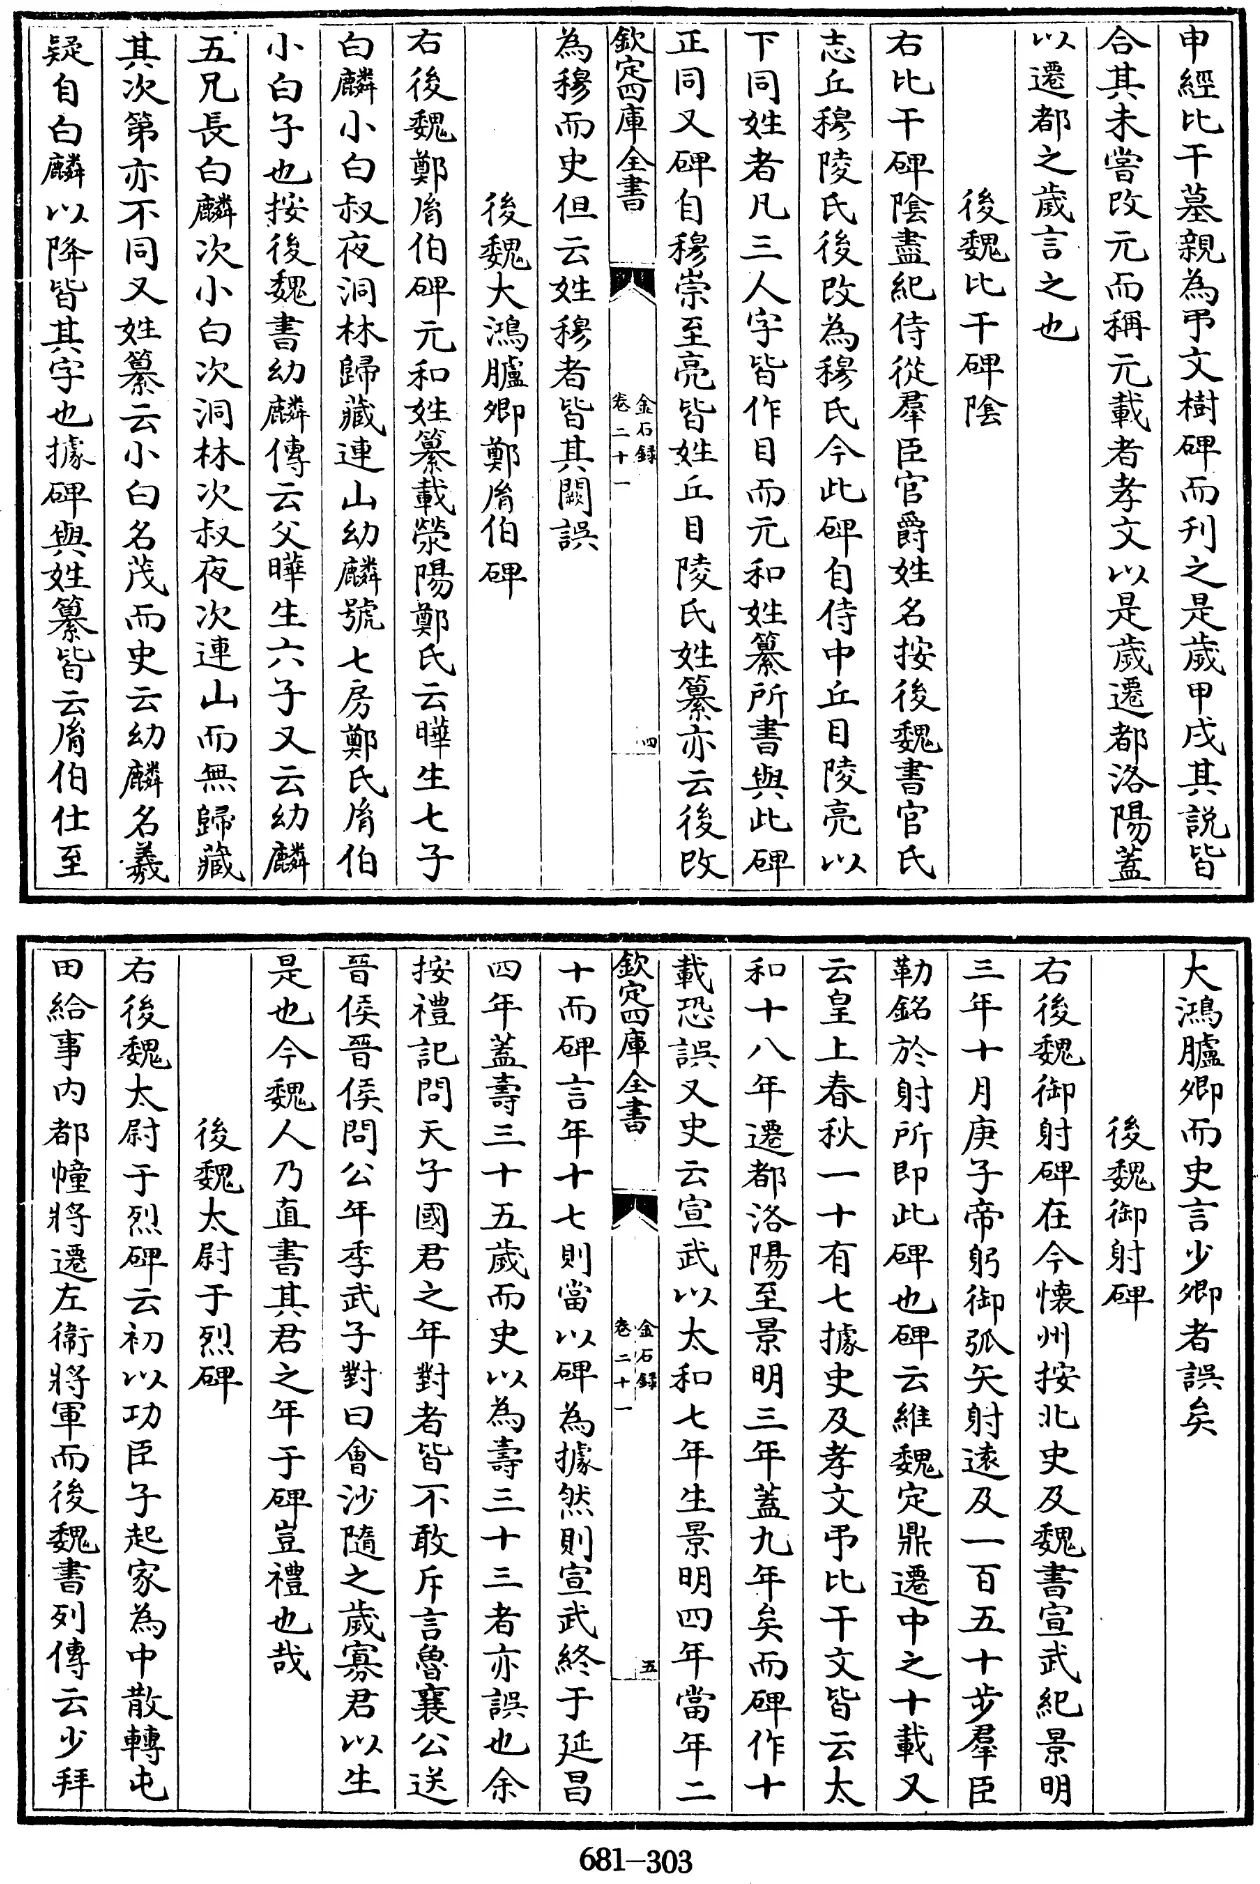 申經比干墓親為弔文樹碑而刊之是歲甲戌其說皆
合其未嘗改元而稱元載者孝文以是歲遷都洛陽蓋
以遷都之歲言之也
後魏比干碑陰
右比干碑陰盡紀侍從羣臣官爵姓名按後魏書官氏
志丘穆陵氏後改為穆氏今此碑自侍中丘目陵亮以
下同姓者凡三人字皆作目而元和姓纂所書與此碑
正同又碑自穆崇至亮皆姓丘目陵氏姓纂亦云後改
欽定四庫全書
金石錄
卷二十一
四
為穆而史但云姓穆者皆其闕誤
後魏大鴻臚卿鄭胤伯碑
右後魏鄭胤伯碑元和姓纂載滎陽鄭氏云曄生七子
白麟小白叔夜洞林歸藏連山幼麟號七房鄭氏胤伯
小白子也按後魏書幼麟傳云父曄生六子又云幼麟
五兄長白麟次小白次洞林次叔夜次連山而無歸藏
其次第亦不同又姓纂云小白名茂而史云幼麟名羲
疑自白麟以降皆其字也據碑與姓纂皆云胤伯仕至
大鴻臚卿而史言少卿者誤矣
後魏御射碑
右後魏御射碑在今懷州按北史及魏書宣武紀景明
三年十月庚子帝躬御弧矢射遠及一百五十步羣臣
勒銘於射所即此碑也碑云維魏定鼎遷中之十載又
云皇上春秋一十有七據史及孝文弔比干文皆云太
和十八年遷都洛陽至景明三年蓋九年矣而碑作十
載恐誤又史云宣武以太和七年生景明四年當年二
欽定四庫全書
金石錄
卷二十一
五
十而碑言年十七則當以碑為據然則宣武終于延昌
四年蓋壽三十五歲而史以為壽三十三者亦誤也余
按禮記問天子國君之年對者皆不敢斥言魯襄公送
晉侯晉侯問公年季武子對曰會沙隨之歲寡君以生
是也今魏人乃直書其君之年于碑豈禮也哉
後魏太尉于烈碑
右後魏太尉于烈碑云初以功臣子起家為中散轉屯
田給事內都幢將遷左衛將軍而後魏書列傳云少拜
681-303